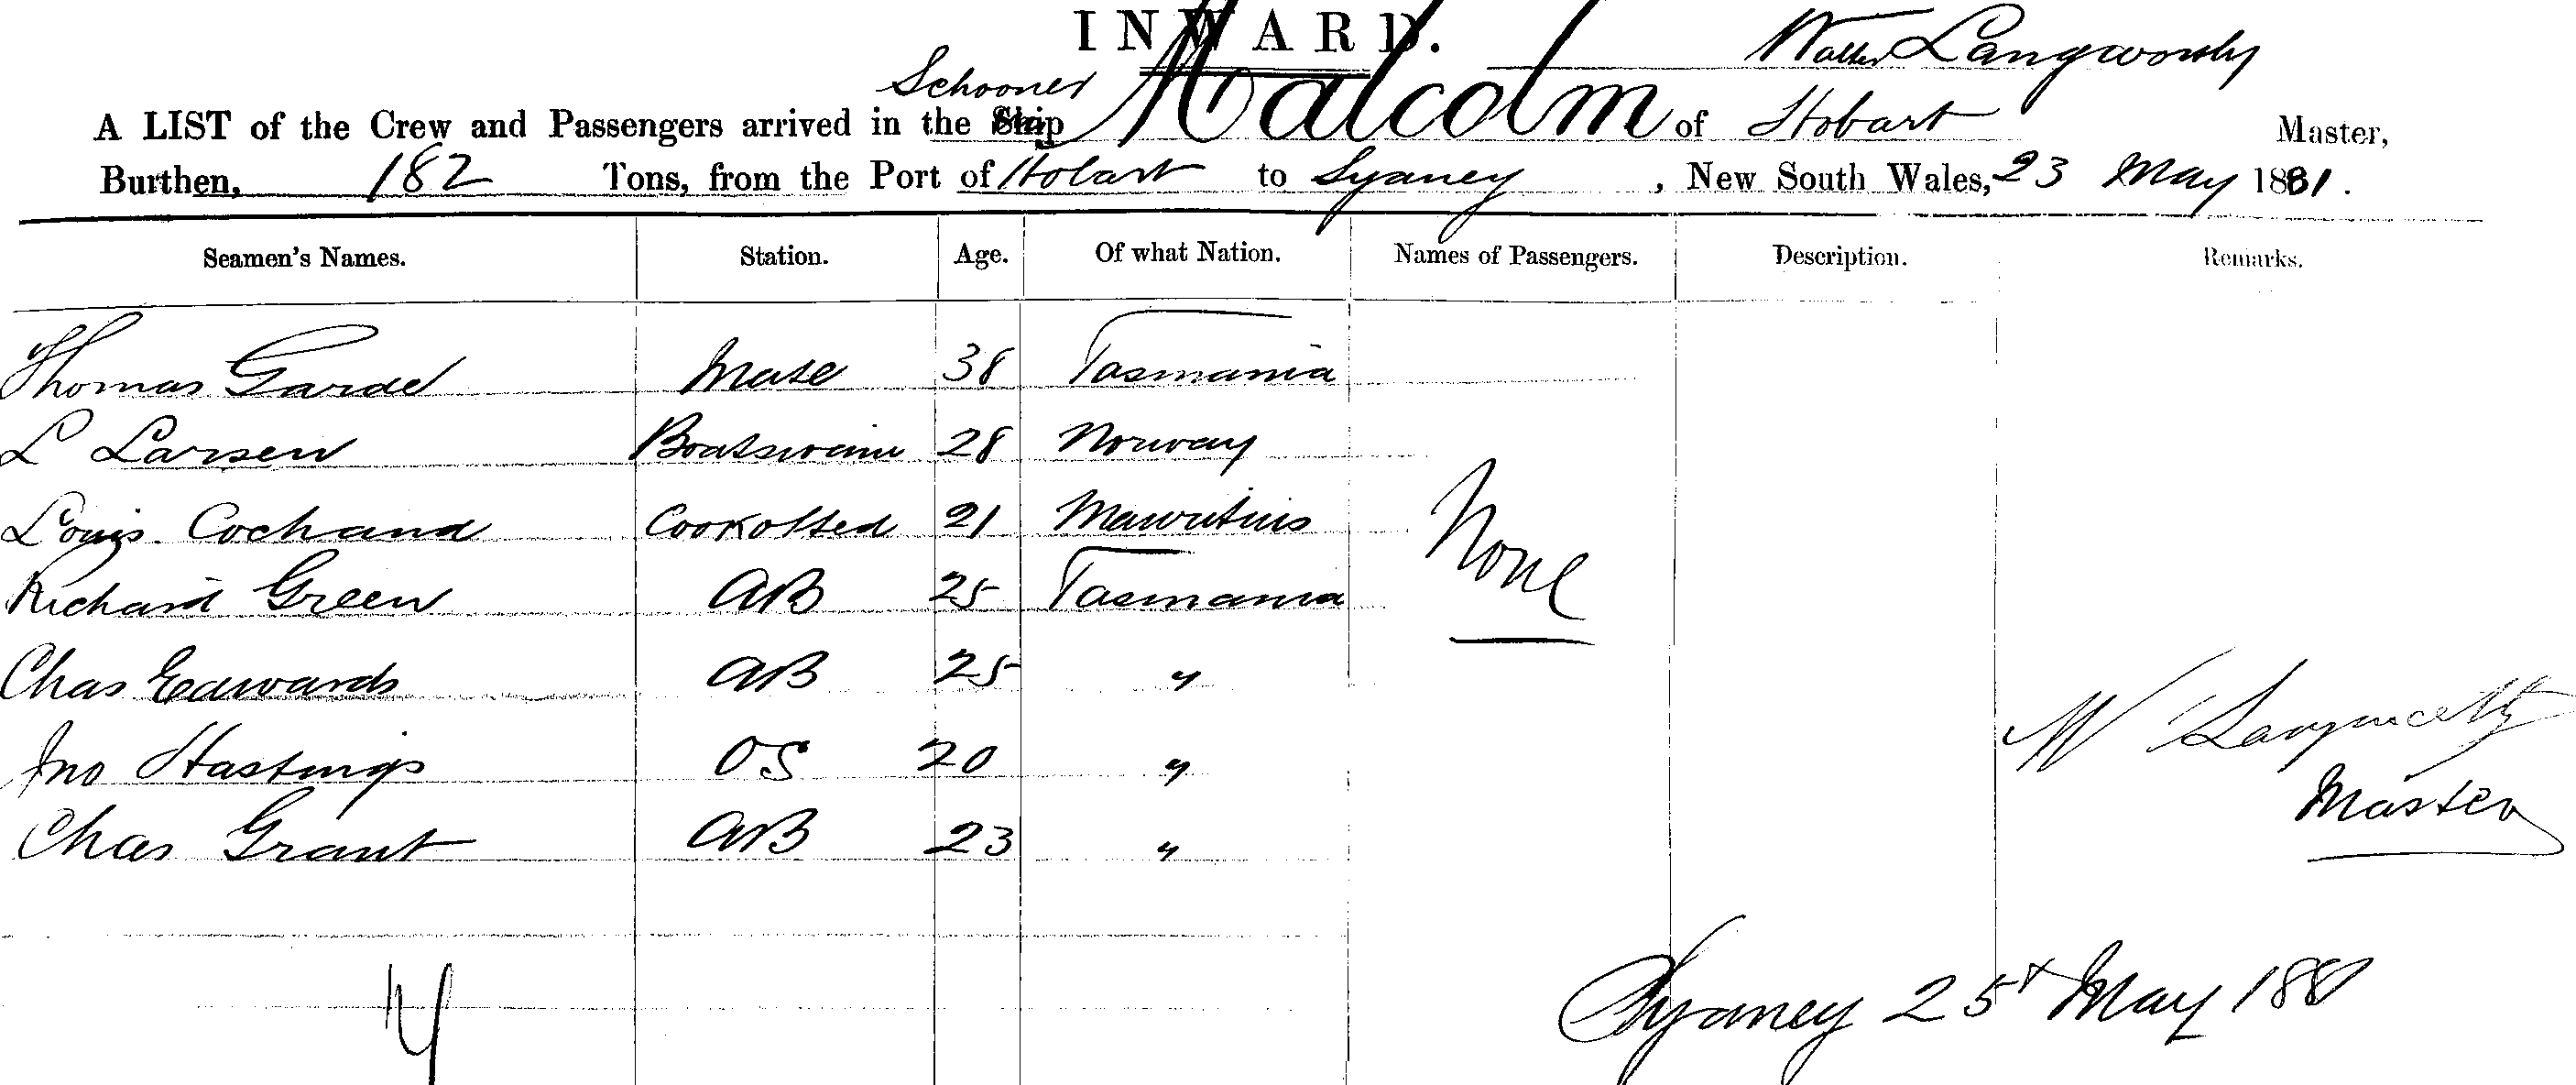 INWARD.
Walter Langworthy
Schooner
A LIST of the Crew and Passengers arrived in the Ship Malcolm of Hobart Master,
Burthen, 182 Tons, from the Port of Hobart to Sydney, New South Wales, 23 May 1881.
Seamen's Names. Station. Age. Of what Nation. Names of Passengers. Description. Remarks.
Thomas Gardel Mate 38 Tasmania
L Larsen Boatswain 28 Norway
Louis Cochand Cook & Sted 21 Mauritius
None
Richard Green AB 25 Tasmania
Chas Edwards AB 25 "
Jno Hastings OS 20 "
W Langworthy
Master
Chas Grant AB 23 "
Sydney 25 May 1881